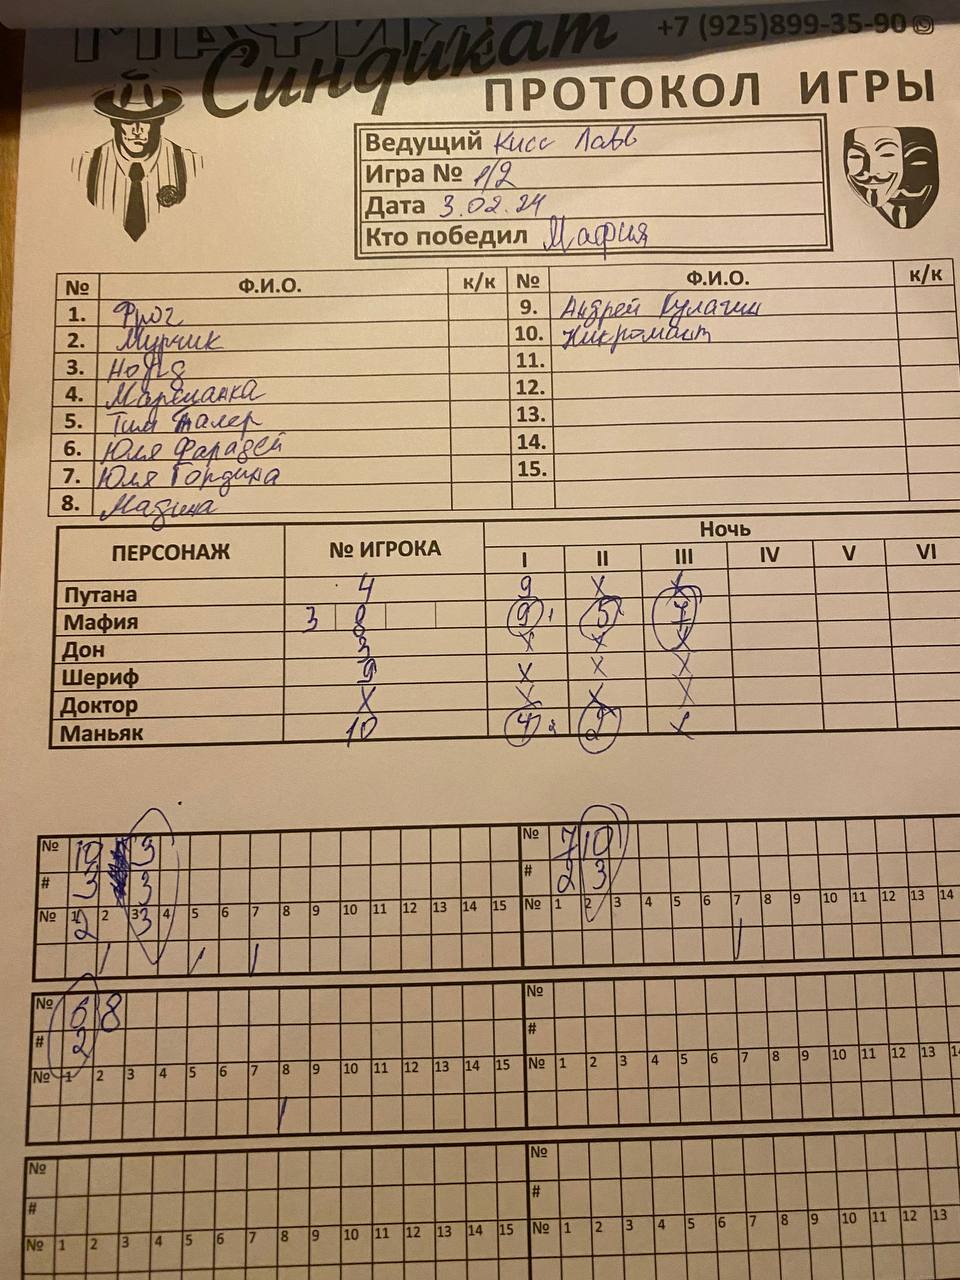 МАФИЯ
Синдикат
+7 (925)899-35-90
ПРОТОКОЛ ИГРЫ
Ведущий Кисс Лавв
Игра № 1/2
Дата 3.02.24
Кто победил Мафия
№ Ф.И.О. к/к № Ф.И.О. к/к
1. Фрог 9. Андрей Кулагин
2. Мурчик 10. Никромант
3. 11.
4. Марципанка 12.
5. Тим Талер 13.
6. Юля Фарадей 14.
7. Юля Гордина 15.
8. Мадина
ПЕРСОНАЖ № ИГРОКА Ночь
I II III IV V VI
Путана 4 9 X X
Мафия 3 8 9 5 7
Дон 3 X X X
Шериф 9 X X X
Доктор X X X X
Маньяк 10 4 2 X
№ 10 3 № 7 10
# 3 3 # 2 3
№ 1 2 3 4 5 6 7 8 9 10 11 12 13 14 15 № 1 2 3 4 5 6 7 8 9 10 11 12 13 14
2 3
/ / / /
№ 6 8 №
# 2 #
№ 1 2 3 4 5 6 7 8 9 10 11 12 13 14 15 № 1 2 3 4 5 6 7 8 9 10 11 12 13
/
№ №
# #
№ 1 2 3 4 5 6 7 8 9 10 11 12 13 14 15 № 1 2 3 4 5 6 7 8 9 10 11 12 13